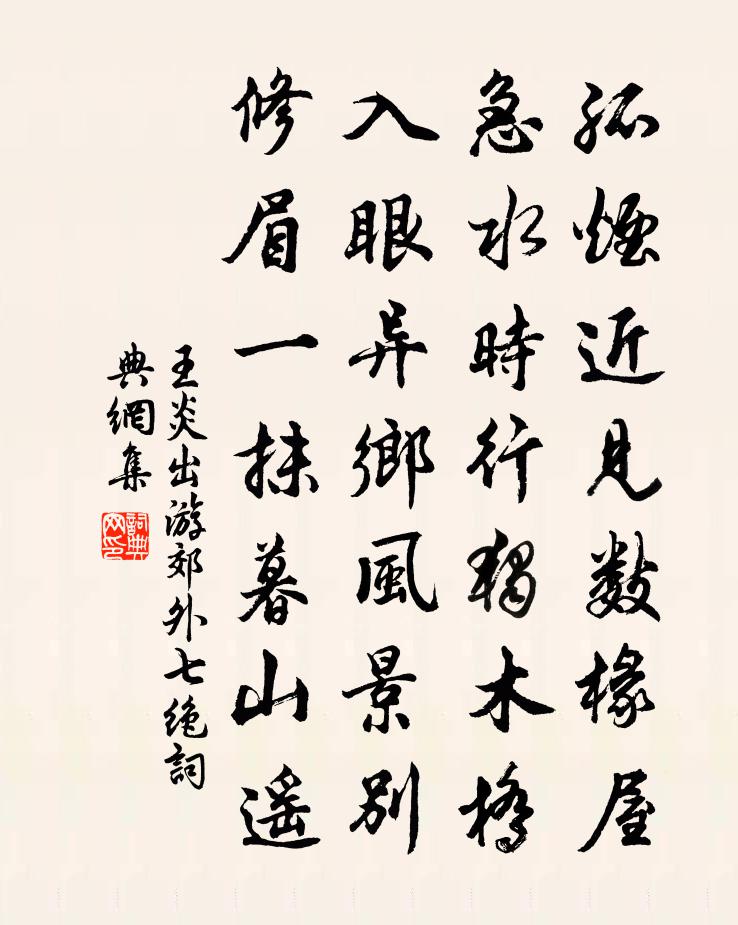 孤煙近見數椽屋
急水時行獨木橋
入眼异鄉風景別
修眉一抹暮山遥
王炎出游郊外七绝詞
典網集
詞典
网印